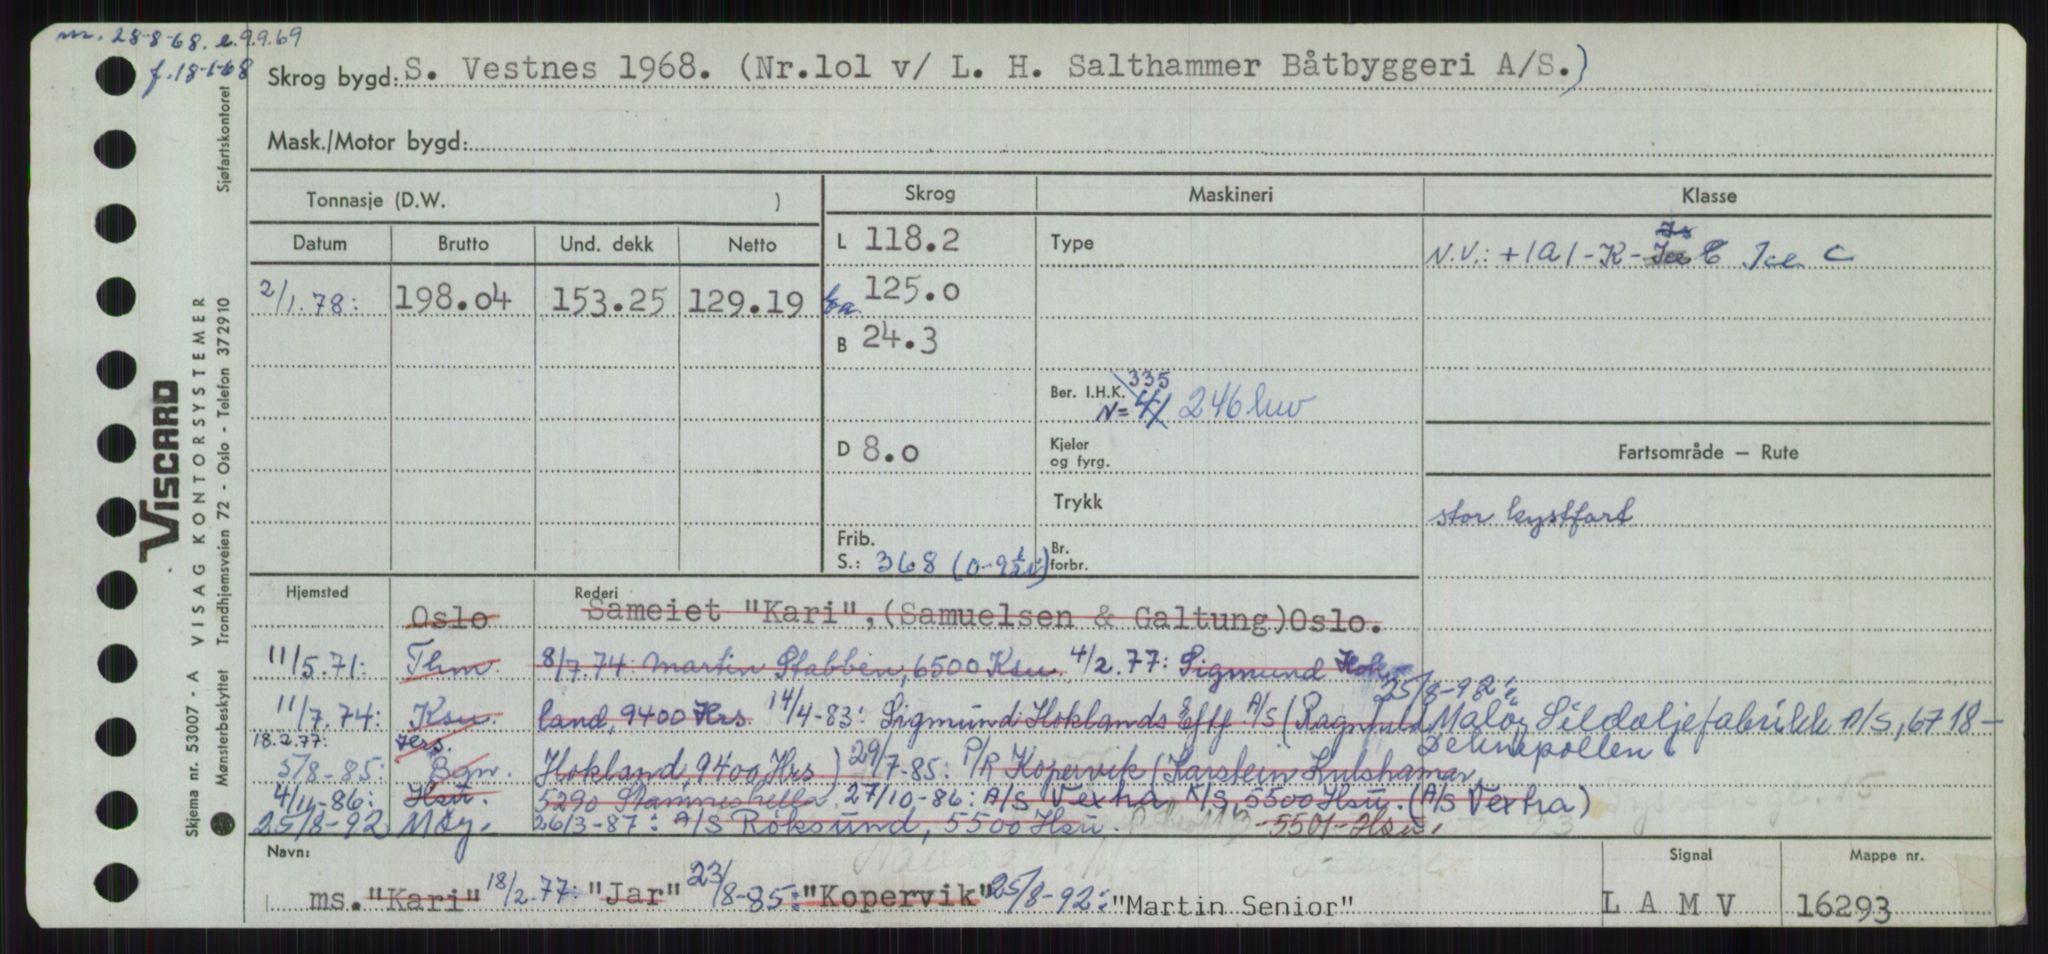 m. 28-8-68. e.9.9.69
f. 18-1-68
Skrog bygd: S. Vestnes 1968. (Nr.lol v/ L. H. Salthammer Båtbyggeri A/S.)
Mask./Motor bygd:
Tonnasje (D.W. )
Skrog
Maskineri
Klasse
Datum Brutto Und. dekk Netto
L 118.2
Type
N.V.: +1A1-K- Ice C
2/1.78: 198.04 153.25 129.19
125.0
B 24.3
Ber. I.H.K. 335
N= 41 246 kw
D 8.0
Kjeler
og fyrg.
Fartsområde — Rute
Trykk
stor kystfart
Frib.
S.: 368 (0-9½)
Br.
forbr.
Hjemsted
Rederi
Oslo Sameiet "Kari",(Samuelsen & Galtung)Oslo.
11/5.71: Thm. 8/7.74: Martin Stabben, 6500 Ksu. 4/2.77: Sigmund Hok-
11/7.74: Ksu. land, 9400 Hrs. 14/4-83: Sigmund Hoklands Eftf A/S (Ragnvald
25/8-92: Måløy Sildoljefabrikk A/S, 6718-
Deknepollen
18.2.77: Hrs.
5/8-85: Bgn. Hokland, 9400 Hrs) 29/7-85: P/R Kopervik (Karstein Kulshamar,
4/11-86: Hsu. 5290 Stanneshella 27/10-86: A/S Vextra K/S, 5500 Hsu. (A/S Vextra)
25/8-92 Møy. 26/3-87: A/S Røksund, 5500 Hsu. -5501-Hsu,
Navn:
Signal
Mappe nr.
ms. "Kari" 18/2.77: "Jar" 23/8-85: "Kopervik" 25/8-92: "Martin Senior"
L A M V
16293
VISCARD
VISAG KONTORSYSTEMER
Skjema nr. 53007 - A
Mønsterbeskyttet
Trondhjemsveien 72 - Oslo - Telefon 372910
Sjøfartskontoret